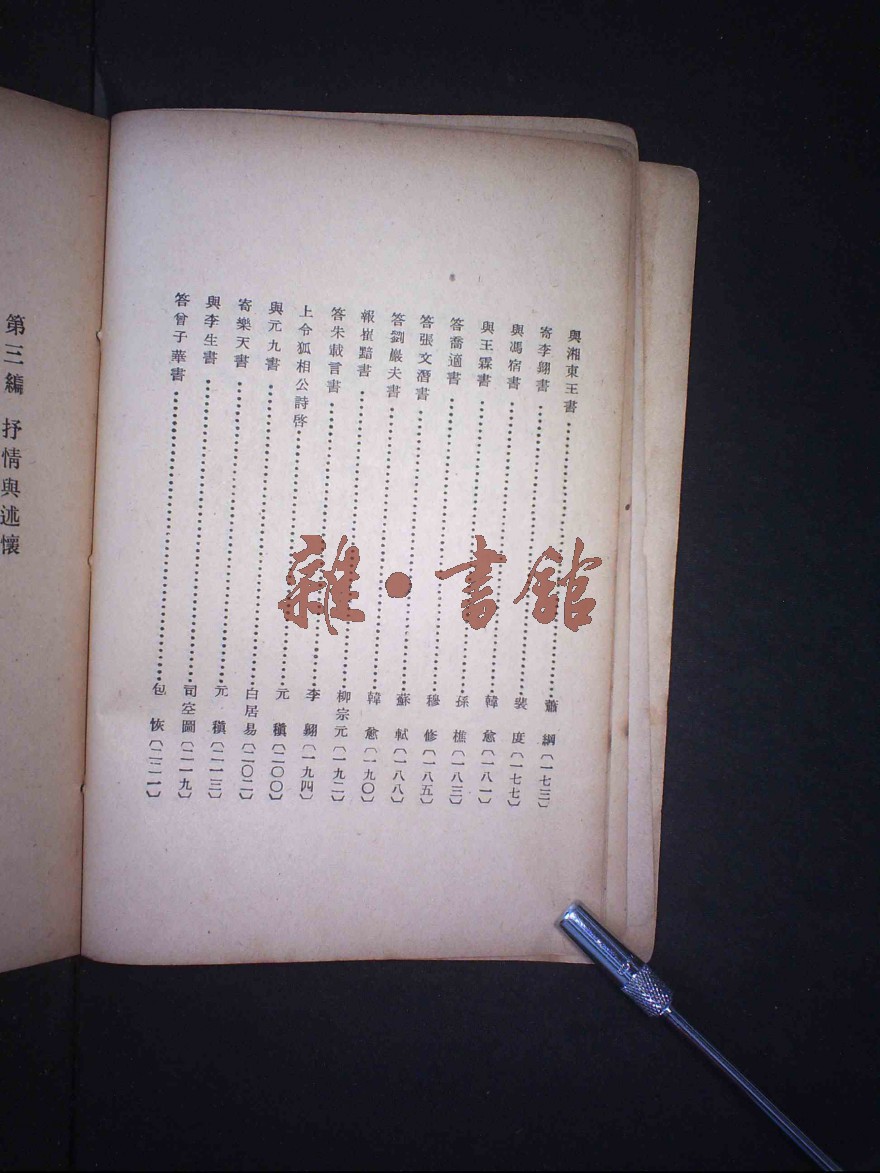 與湘東王書……蕭綱〔一七三〕
寄李翺書……裴度〔一七七〕
與馮宿書……韓愈〔一八一〕
與王霖書……孫樵〔一八三〕
答喬適書……穆修〔一八五〕
答張文潛書……蘇軾〔一八八〕
答劉巖夫書……韓愈〔一九〇〕
報崔黯書……柳宗元〔一九二〕
答朱載言書……李翺〔一九四〕
上令狐相公詩啓……元稹〔二〇〇〕
與元九書……白居易〔二〇二〕
寄樂天書……元稹〔二一三〕
與李生書……司空圖〔二一九〕
答曾子華書……包恢〔二二一〕
第三編 抒情與述懷
雜·書館